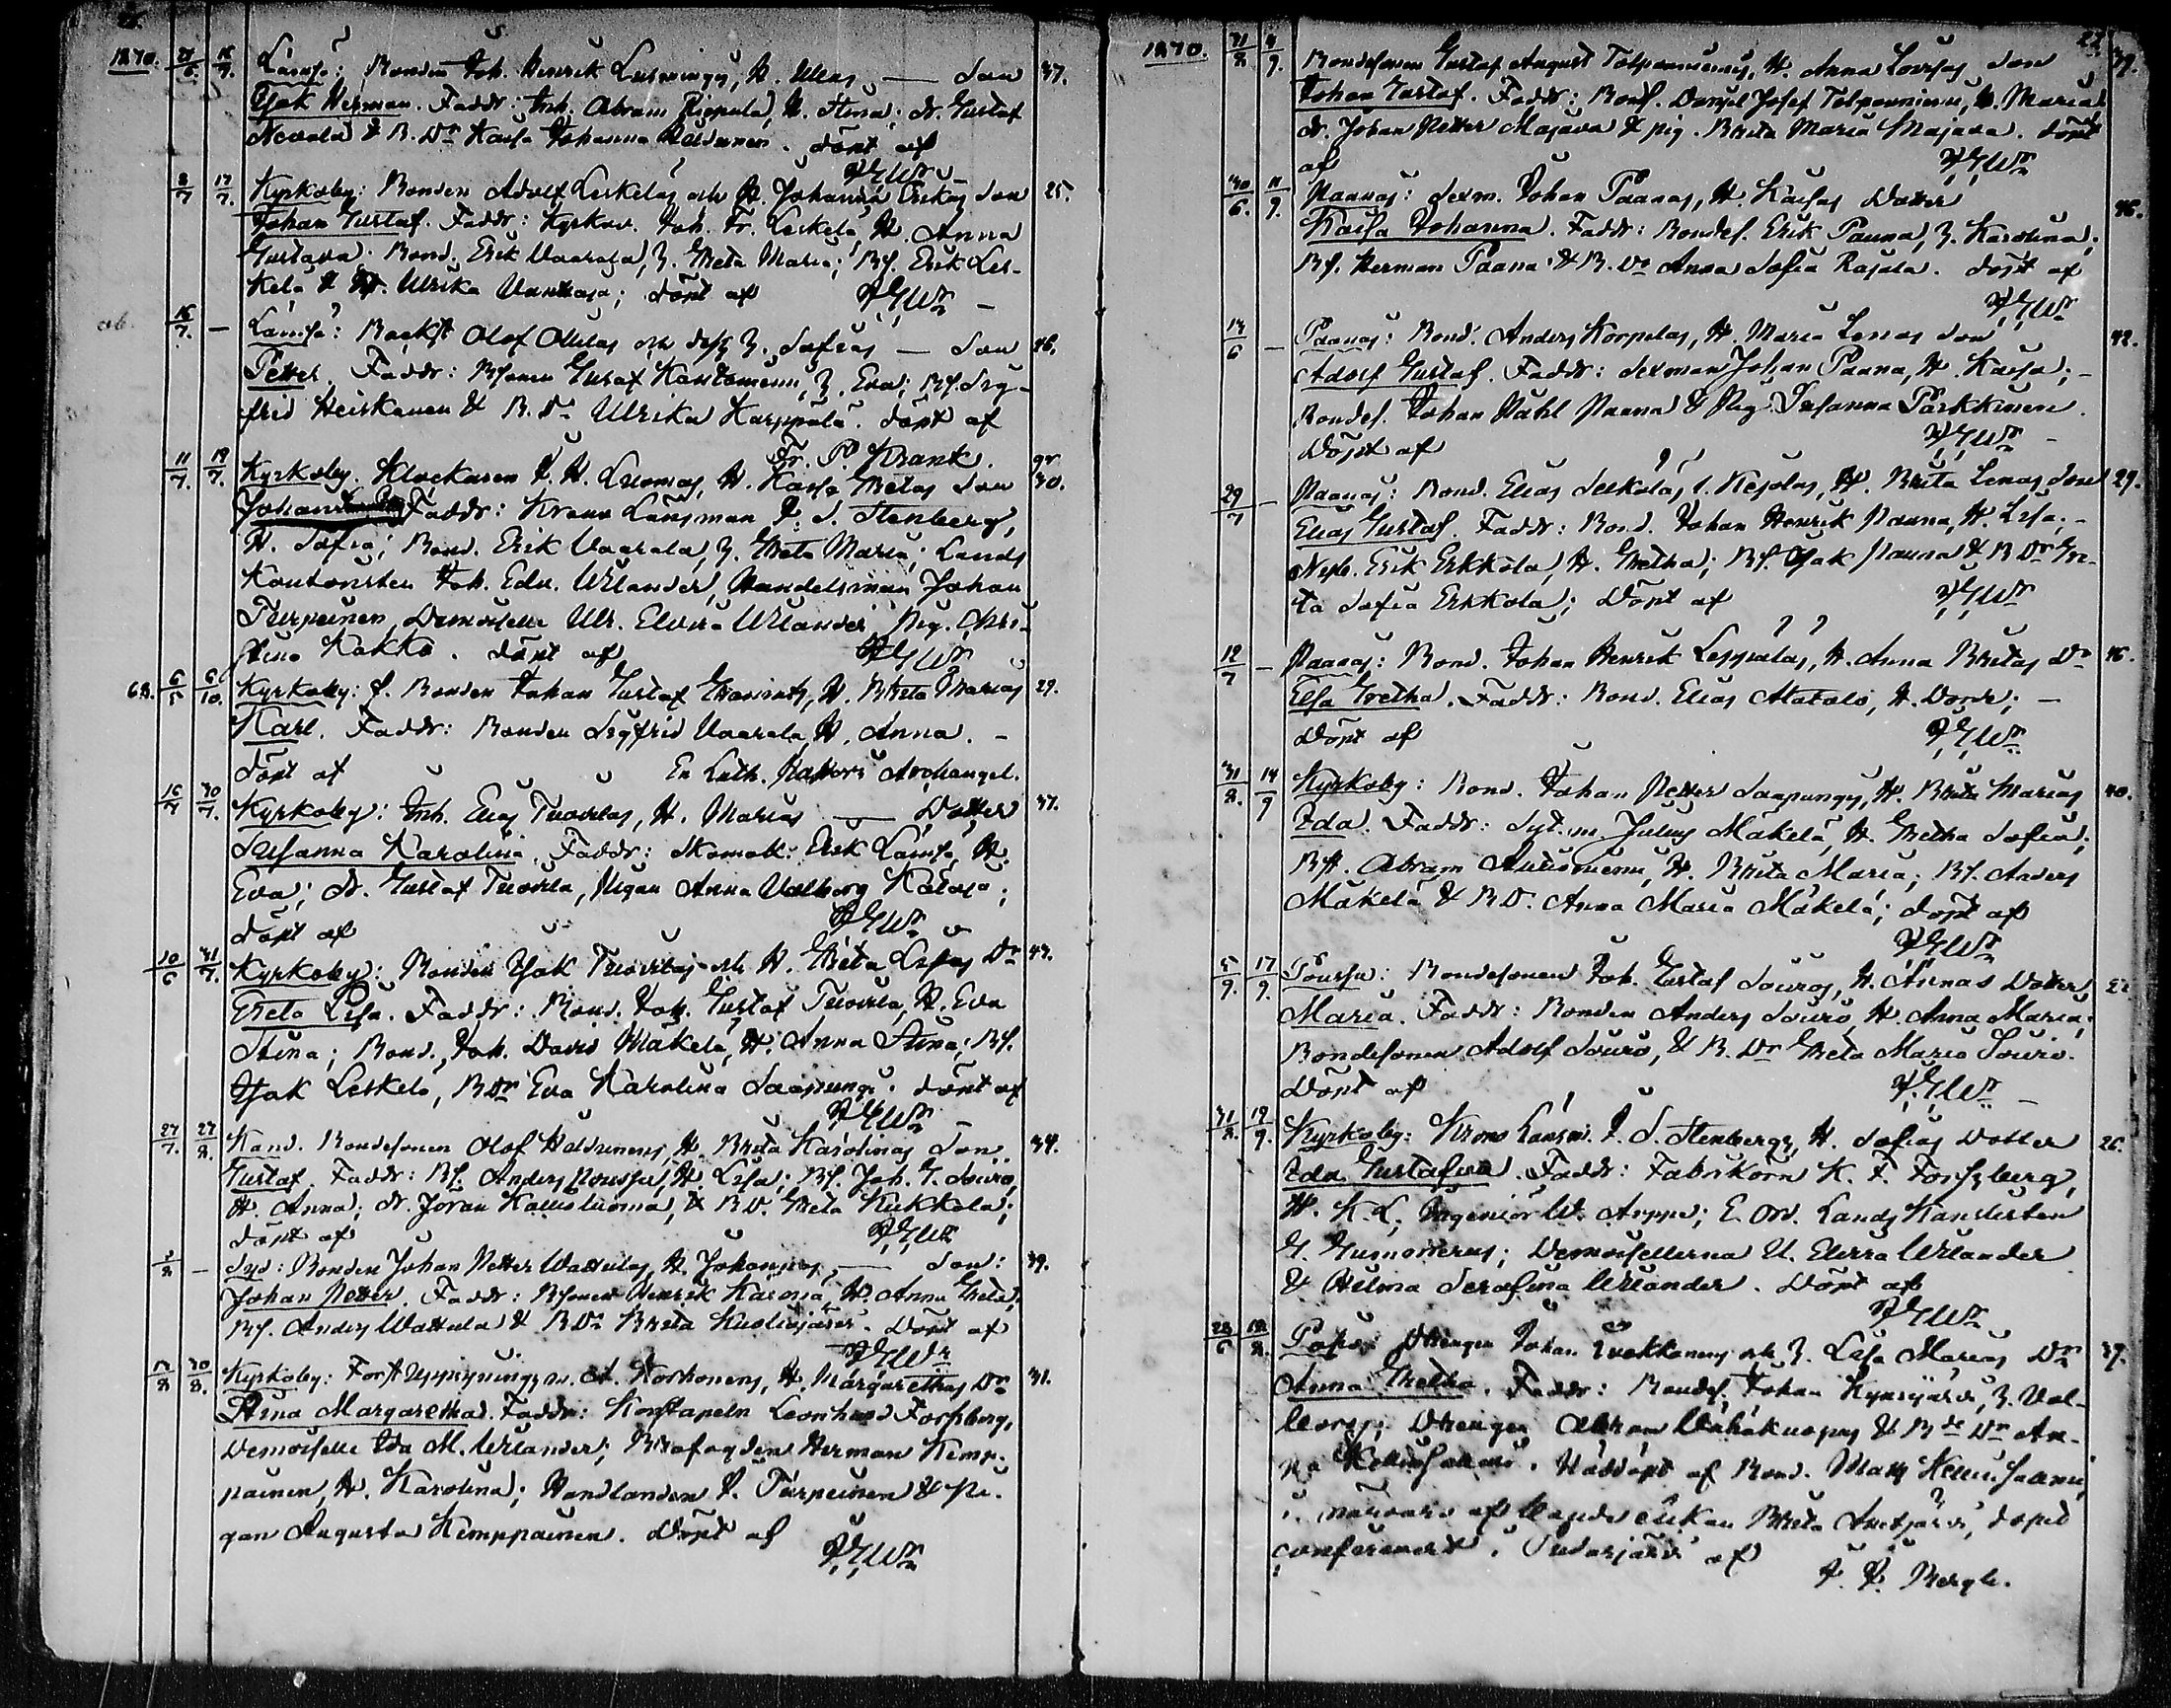 1870. 27/6. 16/7. Lämsä: Bonden Joh. Henrik Lusmings, H. Ullas — Son 37.
Isak Herman. Faddr: Inh. Abram Pieppula, H. Stina; dr. Gustaf
Nevala & B. Dr Kaisa Johanna Halvunen. Döpt af
JGWr
8/7 17/7. Kyrkoby: Bonden Adolf Leskeläs och H. Johanna Eriks Son 25.
Johan Gustaf. Faddr: Kyrkov. Joh. Fr. Leskelä, H. Anna
Gustava. Bond. Erik Vaarala, H. Greta Maria; Bs. Erik Les-
kelä & H. Ulrika Vanttaja; döpt af JGWr —
16/7. — Lämsä: Backst Olof Ollilas och dess H. Sofias — Son 46.
Petter. Faddr: Bsonen Gustaf Kantomenn, H. Eva; Bs. Sig-
frid Heiskanen & B. Dr Ulrika Karppala. döpt af
Fr. P. Krank.
11/7. 19/7. Kyrkoby. Klockaren J. H. Luomas, H. Kaisa Gretas Son 30.
Johan Faddr: Krono Länsman J. S. Stenberg,
H. Sofia; Bond. Erik Vaarala, H. Greta Maria; Lands
Kontoristen Joh. Edv. Wilander, Handelsman Johan
Turpeinen, Demoiselle Ulr. Elvira Wilander, Pig. Chri-
stina Kakko. döpt af JGWr
68. 6/5 6/10. Kyrkoby: f. Bonden Johan Gustaf Granints, H. Brita Marias 29.
Karl. Faddr: Bonden Sigfrid Vaarala, H. Anna. —
döpt af En Luth. Pastor i Archangel.
16/7 30/7. Kyrkoby: Inh. Elias Tuovilas, H. Marias — Dotter 37.
Susanna Karolina. Faddr: Skomak. Erik Lämsä, H.
Eva; dr. Gustaf Tuovila, Pigan Anna Valborg Kataja;
döpt af JGWr
10/6 31/7. Kyrkoby: Bonden Isak Tuovilas och H. Greta Lisas Dr 43.
Greta Lisa. Faddr: Bond. Joh. Gustaf Tuovila, H. Eva
Stina; Bond. Joh. David Mäkelä, H. Anna Stina; Bs.
Isak Leskelä, BDr Eva Karolina Saapunge. döpt af
JGWr
27/7. 27/8. Kand. Bondesonen Olof Halvunens, H. Brita Karolinas Son 34.
Gustaf. Faddr: Bs. Anders Poussu, H. Lisa; Bs. Joh. G. Souro,
H. Anna; dr. Jöran Kallioluoma, & B.D. Greta Kukkola;
döpt af JGWr
2/8 — Syd: Bonden Johan Petter Wattulas, H. Johannas — Son: 39.
Johan Petter. Faddr: Bsonen Henrik Karma, H. Anna Greta;
Bs. Anders Wattula & BDr Brita Kuolajärvi. Döpt af
JGWr
12/8 30/8. Kyrkoby: Forstuppsyningsm. A. Korhonens, H. Margarethas Dr 31.
Stina Margaretha. Faddr: Konstapeln Leonhard Forssberg,
Demoiselle Ida M. Wilander; Brofogden Herman Kemp-
painen, H. Karolina; Handlanden J. Turpeinen & Pi-
gan Augusta Kemppainen. Döpt af
JGWr
1870. 31/8 4/9. Bondesonen Gustaf August Tolpanniemis, H. Anna Lovisas Son 39.
Johan Gustaf. Faddr: Bonds. Daniel Josef Tolpanniemi, H. Maria;
dr. Johan Petter Majava & pig. Brita Maria Majava. döpt
af JGWr
30/6. 11/9. Paanas: Sexm. Johan Paanas, H. Kaisas Dotter 46.
Kaisa Johanna. Faddr: Bondes. Erik Paana, H. Karolina;
Bs. Herman Paana & B. Dr Anna Sofia Rajala. döpt af
JGWr
14/6 — Paanas: Bond. Anders Korpelas, H. Maria Lenas Son 42.
Adolf Gustaf. Faddr: Sexman Johan Paana, H. Kaisa; —
Bondes. Johan Pahl Paana & Pig. Susanna Parkkinen.
Döpt af JGWr —
29/7 — Paanas: Bond. Elias Seikola, l. Kejolas, H. Brita Lenas Son 29.
Elias Gustaf. Faddr: Bond. Johan Henrik Paana, H. Lisa; —
Nyb. Erik Erkkola, H. Gretha; Bs. Isak Paana & BDr Gre-
ta Sofia Erkkola; Döpt af JGWr
12/7 — Paanas: Bond. Johan Henrik Leppalas, H. Anna Britas Dr 46.
Elsa Gretha. Faddr: Bond. Elias Matalo, H. Dorde; —
Döpt af JGWr
31/8. 14/9 Kyrkoby: Bond. Johan Petter Saapungs, H. Brita Marias 40.
Ida. Faddr: Syt.m. Julius Mäkelä, H. Gretha Sofia;
Bst. Abram Autioniemi, H. Brita Maria; Bs. Anders
Mäkelä & B.D. Anna Maria Mäkelä; döpt af
JGWr
5/9. 17/9. Poussu: Bondesonen Joh. Gustaf Souros, H. Annas Dotter
Maria. Faddr: Bonden Anders Souro, H. Anna Maria;
Bondesonen Adolf Souro, & B. Dr Greta Maria Souro.
Döpt af JGWr —
31/8. 19/9. Kyrkoby: Krono Länsm. J. S. Stenbergs, H. Sofias Dotter 26.
Ida Gustafva. Faddr: Fabrikorn K. F. Forssberg,
H. K. L; Ingeniör W. Arppe; E. Ord. Lands Kanslisten
G. Gumoerus; Demoisellerna U. Elvira Wilander
& Hilma Serafina Wilander. Döpt af
JGWr
28/6 18/8. Posio: Drengen Johan och H. Lisa Marias Dr 37.
Anna Gretha. Faddr: Bondes. Johan Kynsijärvi, H. Val-
borg; Drengen Abram Wähäkuopus & Bde Dr An-
na. Nöddöpt af Bond. Matts
i närvaro af Bonde enkan Brita, dopet
confirmerat i Pudasjärvi af
J. J. Bergh.